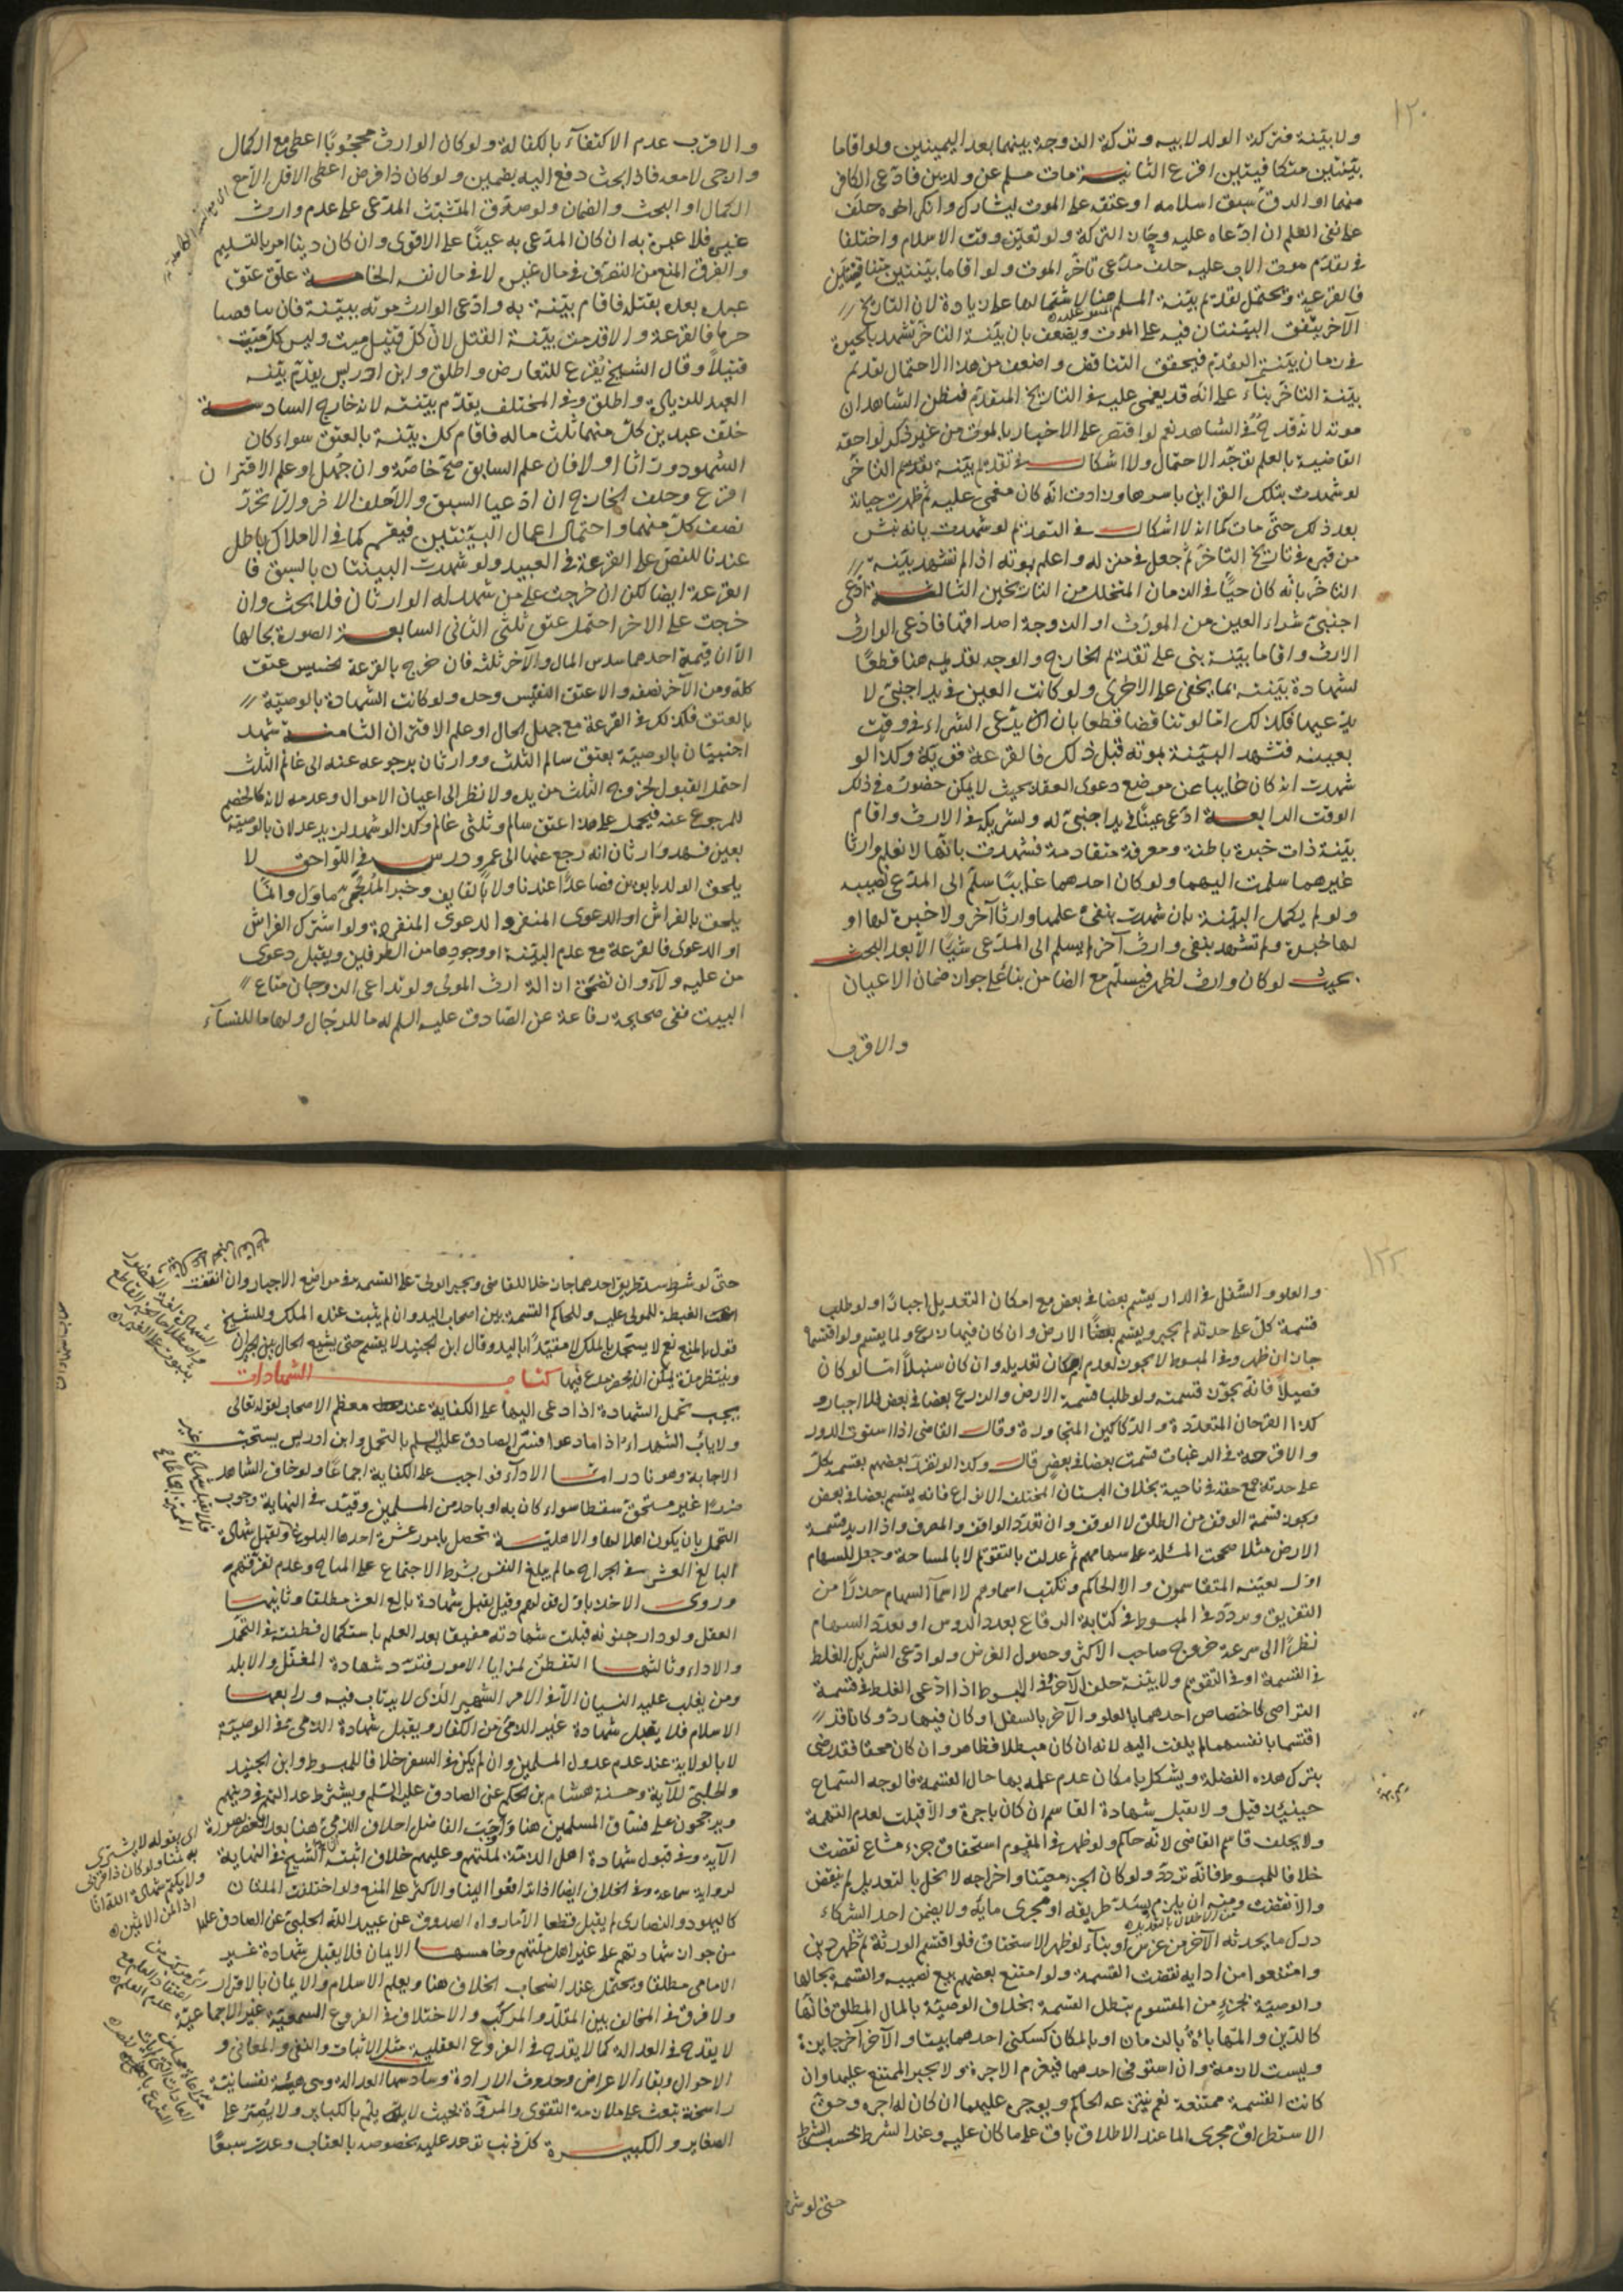 ١٢٠
ولا بينة فتركة الولد لابيه وتركة الزوجة بينهما بعد اليمينين ولو اقاما
بينتين متكافيتين اقرع الثانية مات مسلم عن ولدين فادعى الكافر
منهما او الرق سبق اسلامه او عتقه على الموت ليشارك وانكر اخوه حلف
على نفى العلم ان ادعاه عليه وحاز التركة ولو تعين وقت الاسلام واختلفا
فى تقدم موت الاب عليه حلف مدعى تاخر الموت ولو اقاما بينتين متناقضتين
فالقرعة ويحتمل تقديم بينة المسلم هنا لاشتمالها على زيادة لان التاريخ
الآخر يتفق البينتان فيه على الموت ويضعف بان بينة التاخر تشهد بالحيوة
فى زمان بينة التقدم فيحقق التناقض واضعف من هذا الاحتمال تقديم
بينة التاخر بناء على انه قد يغمى عليه فى التاريخ المتقدم فيظن الشاهدان
موته لانه قدح فى الشاهد نعم لو اقتصر على الاخبار بالموت من غير ذكر لواحقه
القاضية بالعلم توجه الاحتمال ولا اشكال فى تقديم بينة تقديم التاخر
لو شهدت بتلك القراين باسرها وزادت انه كان مغمى عليه ثم ظهرت حياته
بعد ذلك حتى مات كما انه لا اشكال فى التقديم لو شهدت بانه نبش
من قبر فى تاريخ التاخر ثم جعل فى منزله واعلم بموته اذا لم تشهد بينة
التاخر بانه كان حيا فى الزمان المتخلل من التاريخين الثالثة ادعى
اجنبى شراء العين من المورث او الزوجة اصداقها فادعى الوارث
الارث واقاما بينة بنى على تقديم الخارج والوجه تقديمه هنا قطعا
لشهادة بينته بما يخفى على الاخرى ولو كانت العين فى يد اجنبى لا
يدعيها فكذلك اما لو تناقضا قطعا بان يدعى الشراء فى وقت
بعينه فتشهد البينة بموته قبل ذلك فالقرعة قوية وكذا لو
شهدت انه كان غايبا عن موضع دعوى العقد بحيث لا يمكن حضوره فى ذلك
الوقت الرابعة ادعى عينا فى يد اجنبى له ولشريكه فى الارث واقام
بينة ذات خبرة باطنة ومعرفة متقادمة فشهدت بانها لا تعلم وارثا
غيرهما سلمت اليهما ولو كان احدهما غايبا سلم الى المدعى نصيبه
ولو لم يكمل البينة بان شهدت بنفى علمها وارثا آخر ولا خبرة لها او
لها خبرة ولم تشهد بنفى وارث آخر لم يسلم الى المدعى شيئا الا بعد البحث
بحيث لو كان وارث لظهر فيسلم مع الضامن بناء على جواز ضمان الاعيان
والاقرب
والاقرب عدم الاكتفاء بالكفالة ولو كان الوارث محجوبا اعطى مع الكمال
والاحى لا معه فاذا بحث دفع اليه بضمين ولو كان ذا فرض اعطى الاقل الا مع
الكمال او البحث والضمان ولو صدق المتشبث المدعى على عدم وارث
غيره فلا عبرة به ان كان المدعى به عينا على الاقوى وان كان دينا امر بالتسليم
والفرق المنع من التصرف فى مال غيره لا فى مال نفسه الخامسة علق عتق
عبده بعد بقتله فاقام بينة به وادعى الوارث موته ببينة فان
فالقرعة والاقدمت بينة القتل لان كل قتيل ميت وليس كل ميت
قتيلا وقال الشيخ يقرع للتعارض واطلق وابن ادريس يقدم بينة
العبد للزيادة واطلق وفى المختلف يقدم بينته لانه خارج السادسة
خلف عبدين كل منهما ثلث ماله فاقام كل بينة بالعتق سواء كان
الشهود وراثا او لا فان علم السابق صح خاصة وان جهل او علم الاقتران
اقرع وحلف الخارج ان ادعيا السبق والا حلف الآخر والا تحرر
نصف كل منهما واحتمال اعمال البينتين فيقسم كما فى الاملاك باطل
عندنا للنص على القرعة فى العبيد ولو شهدت البينتان بالسبق فا
القرعة ايضا لكن ان خرجت على من شهد له الوارثان فلا بحث وان
خرجت على الآخر احتمل عتق ثلثى الثانى السابعة الصورة بحالها
الا ان قيمة احدهما سدس المال والآخر ثلثه فان خرج بالقرعة الخسيس عتق
كله ومن الآخر نصفه والا عتق النفيس وحده ولو كانت الشهادة بالوصية
بالعتق فكذلك فى القرعة مع جهل الحال او علم الاقتران الثامنة شهد
اجنبيان بالوصية بعتق سالم الثلث ووارثان برجوعه عنه الى غانم الثلث
احتمل القبول لخروج الثلث من يده ولا نظر الى اعيان الاموال وعدمه لانه كالخصم
للمرجوع عنه فيحمل على هذا عتق سالم وثلثى غانم وكذا لو شهد لزيد عدلان بالوصية
بعين فشهد وارثان انه رجع عنها الى عمرو درس فى اللواحق لا
يلحق الولد بابوين فصاعدا عندنا ولا بالقايف وخبر المدلجى ماول وانما
يلحق بالفراش او الدعوى المنفردة والدعوى المنفردة ولو اشترك الفراش
او الدعوى فالقرعة مع عدم البينة او وجودها من الطرفين ويقبل دعوى
من عليه ولاء وان تضمن ازالة ارث المولى ولو تداعى الزوجان متاع
البيت ففى صحيحة رفاعة عن الصادق عليه السلم له ما للرجال ولها ما للنساء
١٢٢
والعلو والسفل فى الدار يقسم بعضا فى بعض مع امكان التعديل اجبارا ولو طلب
قسمة كل على حدته لم يجبر ويقسم بعضا الارض وان كان فيها زرع ولما يقسم ولو اقتسماه
جاز ان ظهر وفى المبسوط لا يجوز لعدم امكان تعديله وان كان سنبلا اما لو كان
فصيلا فانه يجوز قسمته ولو طلبا قسمة الارض والزرع بعضا فى بعض فلا اجبار و
كذا القرحان المتعددة والدكاكين المتجاورة وقال القاضى اذا استوت الدور
والاقرحة فى الرغبات قسمت بعضا فى بعض قال وكذا لو تضرر بعضهم بقسمة كل
على حدته جمع حقه فى ناحية بخلاف البستان المختلف الانواع فانه يقسم بعضا فى بعض
ويجوز قسمة الوقف من الطلق لا الوقف وان تعدد الواقف والمصرف واذا اريد قسمة
الارض مثلا صححت المسئلة على سهامهم ثم عدلت بالتقويم لا بالمساحة وجعل للسهام
اول يعينه المتقاسمون والا الحاكم وتكتب اسماؤهم لا اسماء السهام حذرا من
التفريق وتردد فى المبسوط فى كتابة الرقاع بعدد الروس او بعدد السهام
نظرا الى سرعة خروج صاحب الاكثر وحصول الغرض ولو ادعى الشريك الغلط
فى القسمة او فى التقويم ولا بينة حلف الآخر وفى المبسوط اذا ادعى الغلط فى قسمة
التراضى كاختصاص احدهما بالعلو والآخر بالسفل او كان فيها رد وكانا قد
اقتسما بانفسهما لم يلتفت اليه لانه ان كان مبطلا فظاهر وان كان محقا فقد رضى
بترك هذه الفضلة ويشكل بامكان عدم علمه بها حال القسمة فالوجه السماع
حينئذ قيل ولا يقبل شهادة القاسم ان كان باجرة والا قبلت لعدم التهمة
ولا يحلف قاسم القاضى لانه حاكم ولو ظهر فى المقسوم استحقاق جزء مشاع نقضت
خلافا للمبسوط فانه تردد ولو كان الجزء معينا واخراجه لا يخل بالتعديل لم ينقض
والا نقضت ومنه ان يلزم بسد طريقه او مجرى مايه ولا يضمن احد الشركاء
درك ما يحدثه الآخر من غرس او بناء لو ظهر الاستحقاق فلو اقتسم الورثة ثم ظهر دين
وامتنعوا من ادايه نقضت القسمة ولو امتنع بعضهم بيع نصيبه والقسمة بحالها
والوصية بجزء من المقسوم يبطل القسمة بخلاف الوصية بالمال المطلق فانها
كالدين والمهاياة بالزمان او بالمكان كسكنى احدهما بيتا والآخر آخر جايزة
وليست لازمة وان استوفى احدهما فيغرم الاجرة ولا يجبر الممتنع عليها وان
كانت القسمة ممتنعة نعم ينتزعه الحاكم ويوجره عليهما ان كان له اجرة وحق
الاستطراق ومجرى الما عند الاطلاق باق على ما كان عليه وعند الشرط بحسب الشرط
حتى لو شر
حتى لو شرط سد طريق احدهما جاز خلافا للقاضى ويجبر الولى على القسمة فى مواضع الاجبار وان انتفت
الغبطة للمولى عليه وللحاكم القسمة بين اصحاب اليد وان لم يثبت عنده الملك وللشيخ
قول بالمنع نعم لا يسجل بالملك الا مقيدا باليد وقال ابن الجنيد لا يقسم حتى يشيع الحال بين الجيران
وينتظر مدة يمكن ان يحضر مدع فيها كتاب الشهادات
يجب تحمل الشهادة اذا دعى اليها على الكفاية عند معظم الاصحاب لقوله تعالى
ولا ياب الشهداء اذا ما دعوا فسره الصادق عليه السلم بالتحمل وابن ادريس يستحب
الاجابة وهو نادر اما الاداء فواجب على الكفاية اجماعا ولو خاف الشاهد
ضررا غير مستحق سقط سواء كان به او باحد من المسلمين وقيد فى النهاية وجوب
التحمل بان يكون اهلا لها والاهلية تحصل بامور عشرة احدها البلوغ وتقبل شهادة
البالغ العشر فى الجراح ما لم يبلغ النفس بشرط الاجتماع على المباح وعدم تفرقهم
وروى الاخذ باول قولهم وقيل يقبل شهادة بالغ العشر مطلقا وثانيها
العقل ولو دار جنونه قبلت شهادته مفيقا بعد العلم باستكمال فطنته فى التحمل
والاداء وثالثها التفطن لمزايا الامور فترد شهادة المغفل والابله
ومن يغلب عليه النسيان الا فى الامر الشهير الذى لا يرتاب فيه ورابعها
الاسلام فلا يقبل شهادة غير الذمى من الكفار ويقبل شهادة الذمى فى الوصية
لا بالولاية عند عدم عدول المسلمين وان لم يكن فى السفر خلافا للمبسوط وابن الجنيد
والحلبى للآية وحسنة هشام بن الحكم عن الصادق عليه السلم ويشترط عدالتهم فى دينهم
ويرجحون على فساق المسلمين هنا واوجب الفاضل احلاف الذمى هنا بعد العصر بصورة
الآية وفى قبول شهادة اهل الذمة لملتهم وعليهم خلاف اثبته الشيخ فى النهاية
لرواية سماعة وفى الخلاف ايضا اذا ترافعوا الينا والاكثر على المنع ولو اختلفت الملتان
كاليهود والنصارى لم يقبل قطعا الا ما رواه الصدوق عن عبيد الله الحلبى عن الصادق عليه
من جواز شهادتهم على غير اهل ملتهم وخامسها الايمان فلا يقبل شهادة غير
الامامى مطلقا ويحتمل عند اصحاب الخلاف هنا ويعلم الاسلام والايمان بالاقرار
ولا فرق فى المخالف بين المقلد والمركب والاختلاف فى الفروع السمعية غير الاجماعية
لا يقدح فى العدالة كما لا يقدح فى الفروع العقلية مثل الاثبات والنفى والمعانى و
الاحوال وبقاء الاعراض وحدوث الارادة وسادسها العدالة وهى هيئة نفسانية
راسخة تبعث على ملازمة التقوى والمروة بحيث لا يلم بالكباير ولا يصر على
الصغاير والكبيرة كل ذنب توعد عليه بخصوصه بالعقاب وعدت سبعا